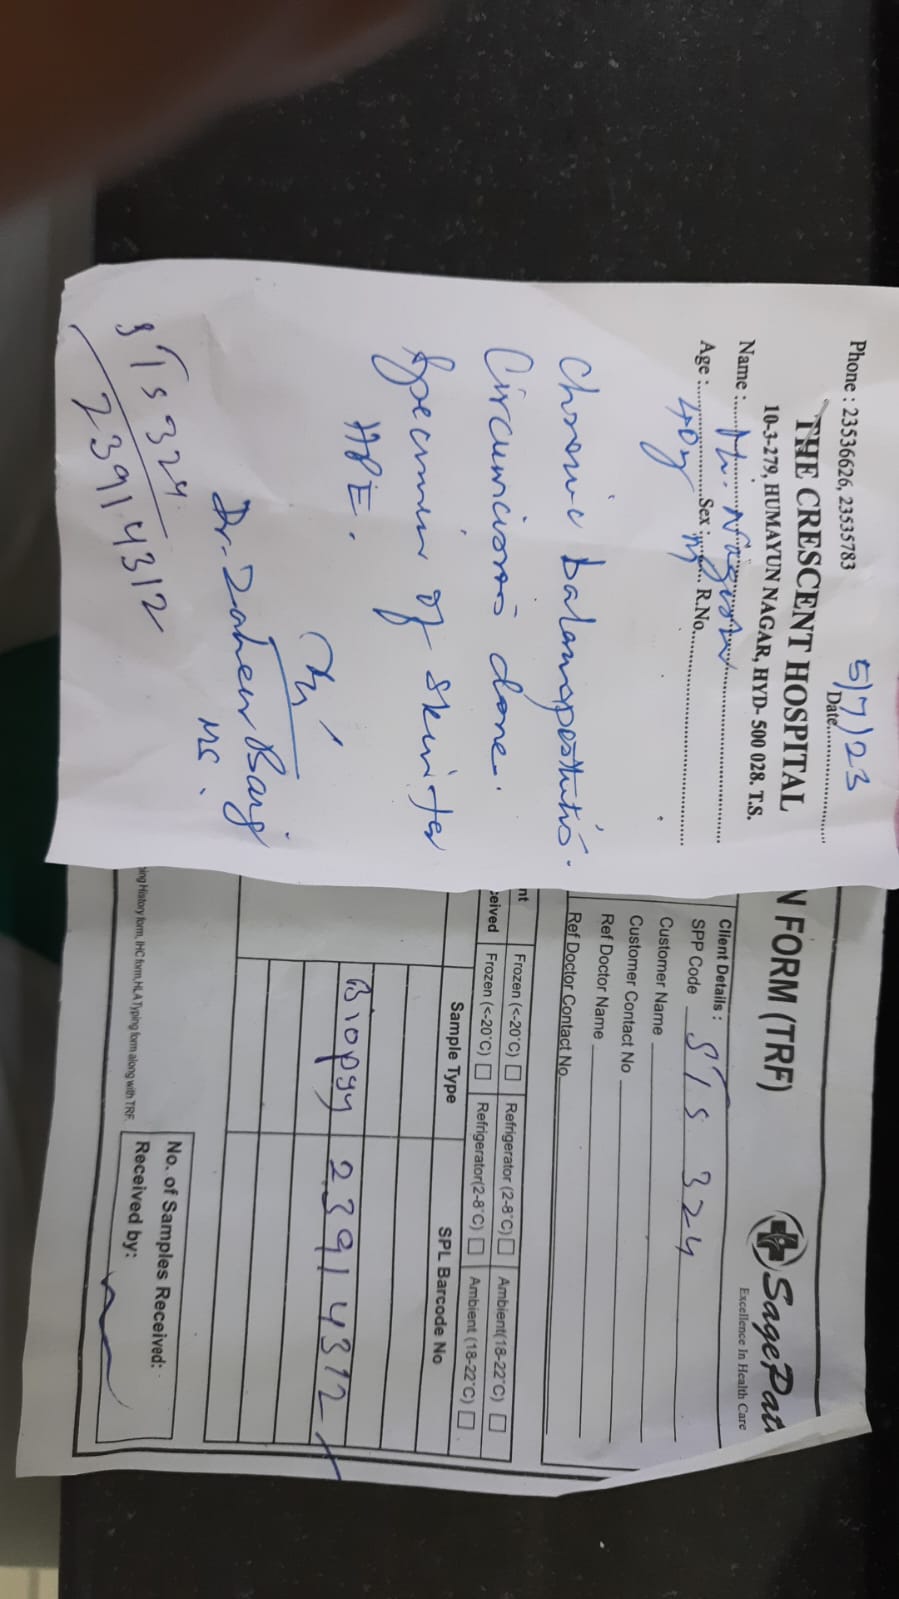 Phone : 23536626, 23535783
5/7/23
Date
THE CRESCENT HOSPITAL
10-3-279, HUMAYUN NAGAR, HYD- 500 028. T.S.
Name : Mr.
Age : 40y Sex : M R.No.
Chronic balanoposthitis.
Circumcision done.
Specimen of skin for
HPE.
Dr. Zaheer Baig
MS.
STS 324
23914312
N FORM (TRF)
SagePat
Excellence In Health Care
Client Details :
SPP Code STS 324
Customer Name
Customer Contact No
Ref Doctor Name
Ref Doctor Contact No
nt Frozen (<-20°C) Refrigerator (2-8°C) Ambient(18-22°C)
ceived Frozen (<-20°C) Refrigerator(2-8°C) Ambient (18-22°C)
Sample Type SPL Barcode No
Biopsy 23914312
ing History form, IHC form, HLA Typing form along with TRF.
No. of Samples Received:
Received by: